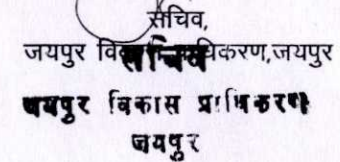 सचिव,
जयपुर विकास प्राधिकरण,जयपुर
सचिव
जयपुर विकास प्राधिकरण
जयपुर